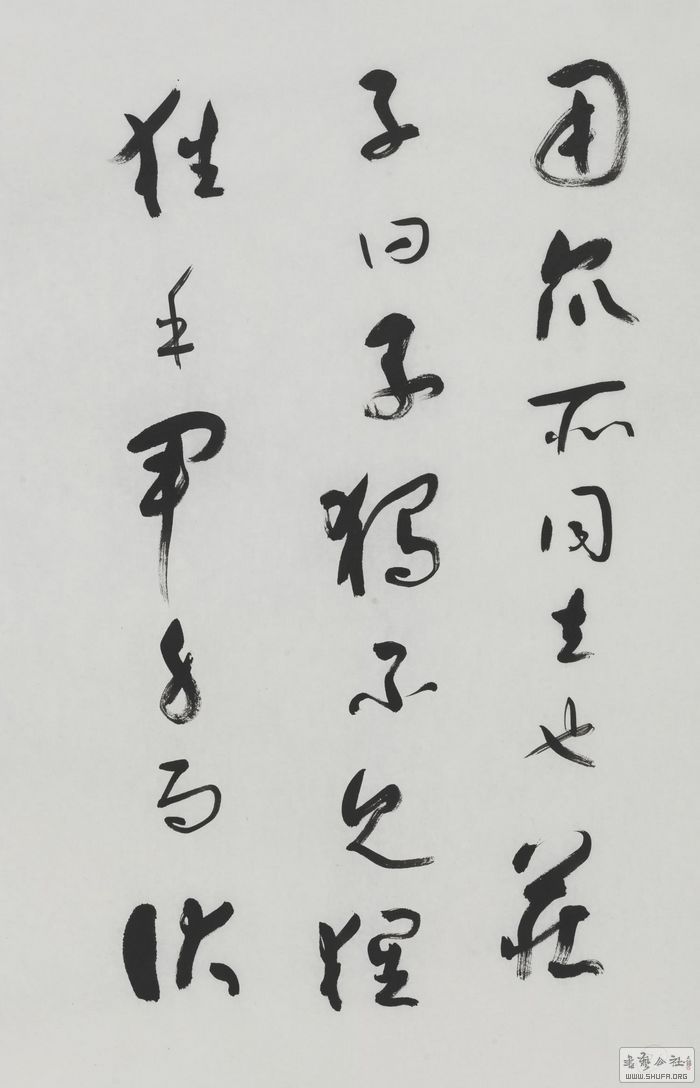 用众所同去也莊
子曰子獨不見狸
狌乎卑身而伏
書藝公社
WWW.SHUFA.ORG